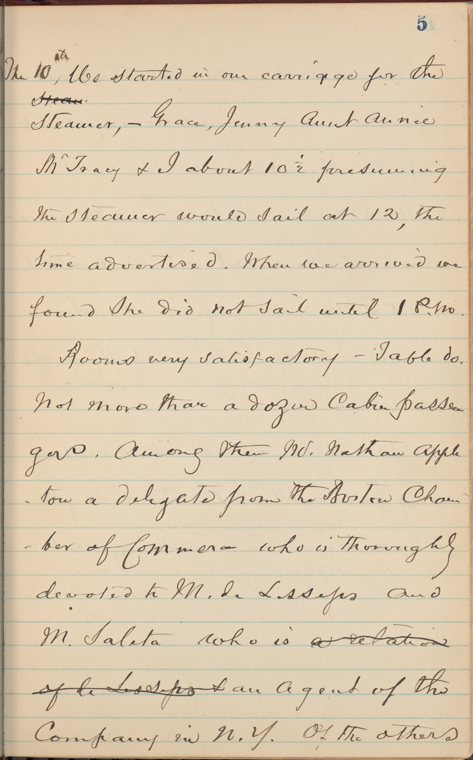 5
The 10th, We started in our carriage for the
Steam
Steamer, – Grace, Jenny Aunt Annie
Mr Tracy & I about 10½ presuming
the steamer would sail at 12, the
time advertised. When we arrived we
found she did not sail until 1 P.M.
Rooms very satisfactory – Table do.
Not more than a dozen Cabin passen
gers. Among them Mr. Nathan Apple
-ton a delegate from the Boston Cham
-ber of Commerce who is thoroughly
devoted to M. de Lesseps and
M. Saleta who is a relation
of de Lesseps & an agent of the
Company in N.Y. Of the others